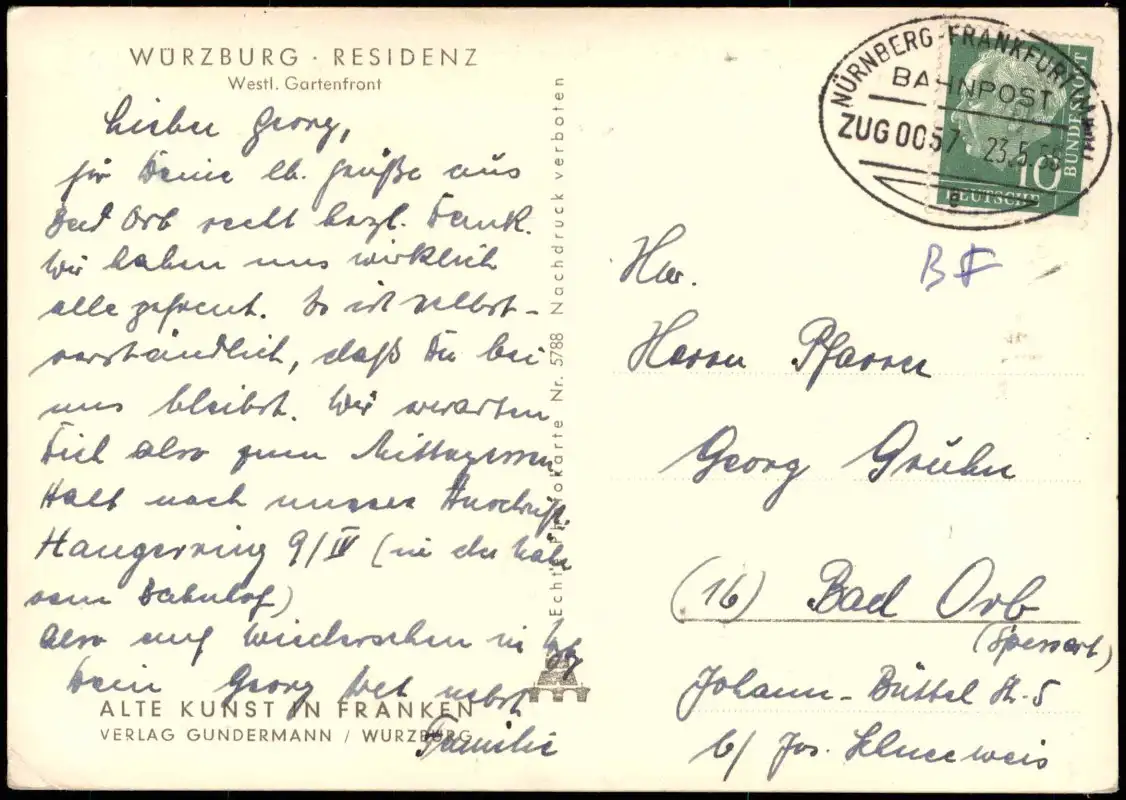 WÜRZBURG · RESIDENZ
Westl. Gartenfront
Lieber Georg,
für Deine lb. Grüße aus
Bad Orb recht herzl. Dank.
Wir haben uns wirklich
alle gefreut. Es ist selbst-
verständlich, daß Du bei
uns bleibst. Wir erwarten
Dich also zum Mittagessen
Halt nach unserer Anschrift.
Haugerring 9/IV (in der Nähe
vom Bahnhof)
Also auf Wiedersehen in
Dein Georg nebst
Familie
ALTE KUNST IN FRANKEN
VERLAG GUNDERMANN / WÜRZBURG
Echte Photokarte Nr. 5788 Nachdruck verboten
NÜRNBERG-FRANKFURT (MAIN)
BAHNPOST
ZUG 0057 23.5.56
a
10
DEUTSCHE
BUNDESPOST
Hw.
Herrn Pfarrer
Georg Gruhn
(16) Bad Orb
(Spessart)
Johann-Büttel St. 5
b/ Jos. Schneeweis